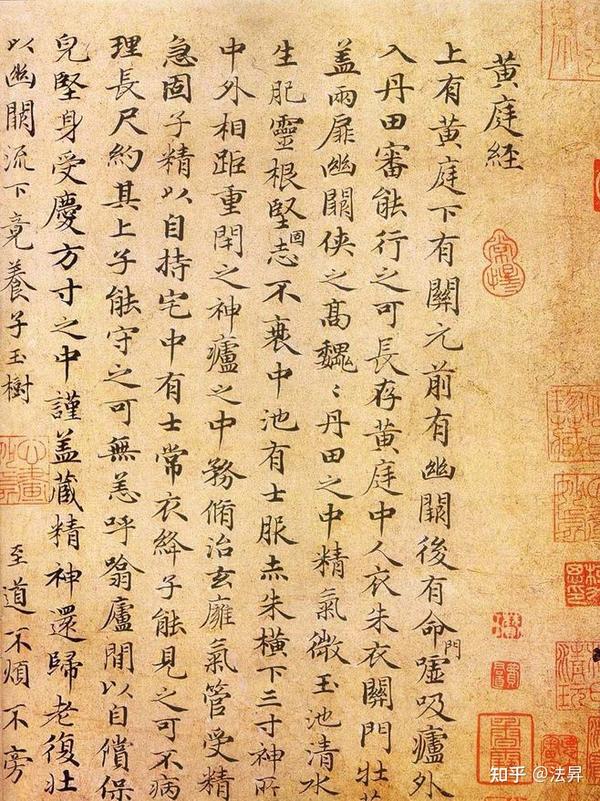 黄庭経
上有黄庭下有關元前有幽闕後有命門噓吸廬外
入丹田審能行之可長存黄庭中人衣朱衣關門壯
盖兩扉幽闕俠之高魏〻丹田之中精氣微玉池清水
生肥靈根堅固志不衰中池有士服赤朱橫下三寸神所
中外相距重閇之神廬之中務脩治玄廱氣管受精
急固子精以自持宅中有士常衣絳子能見之可不病
理長尺約其上子能守之可無恙呼噏廬間以自償保
皃堅身受慶方寸之中謹盖藏精神還歸老復壯
以幽闕流下竟養子玉樹 至道不煩不旁
知乎 @法昇